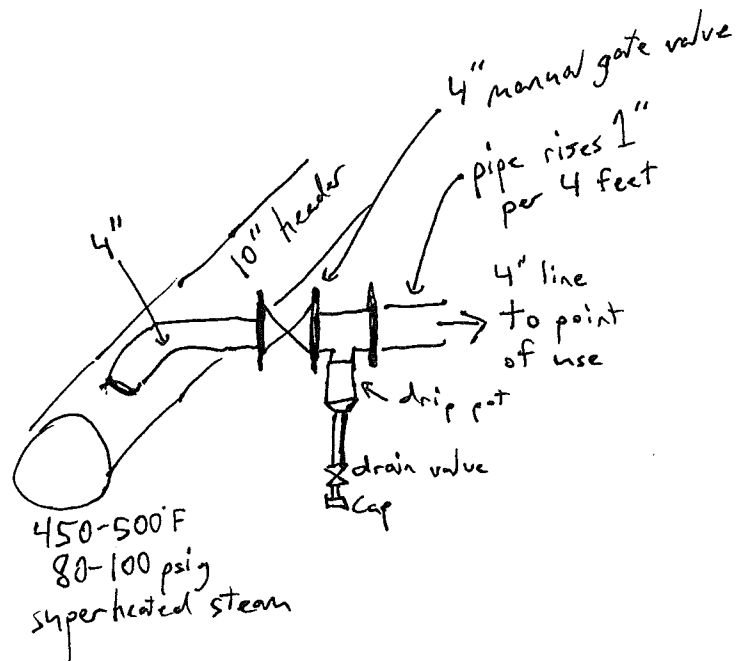 4" manual gate valve
pipe rises 1"
per 4 feet
10" header
4"
4" line
to point
of use
drip pot
drain valve
cap
450-500°F
80-100 psig
superheated steam